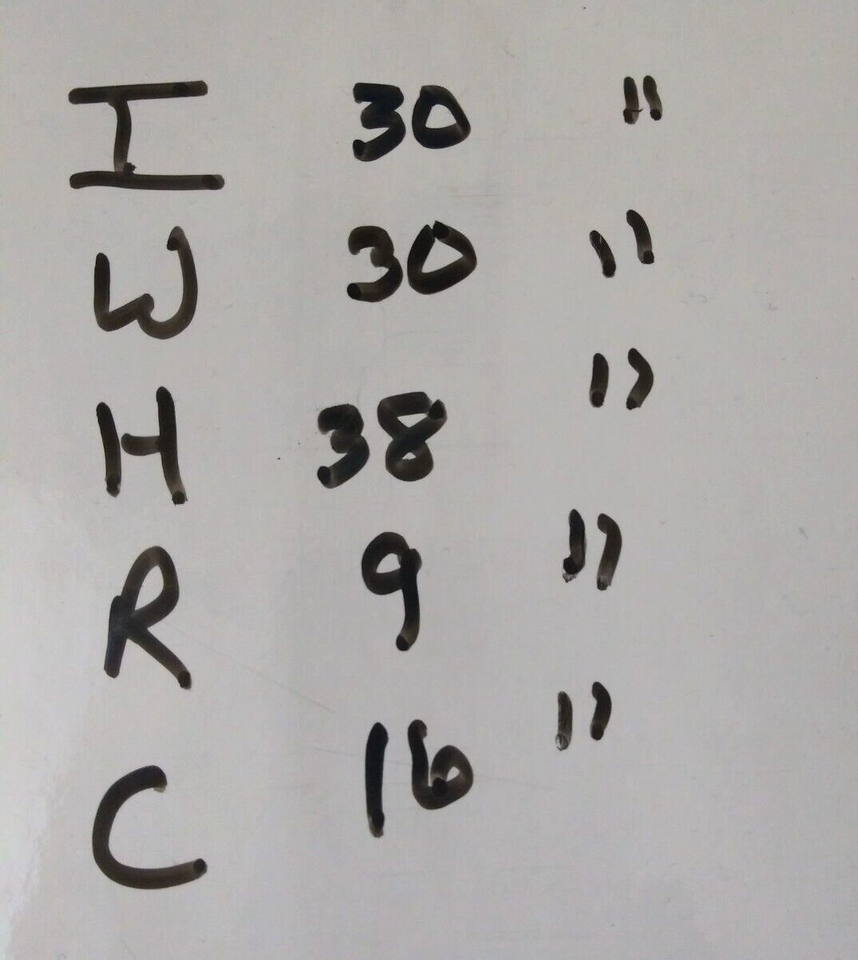 I 30 "
W 30 "
H 38 "
R 9 "
C 16 "